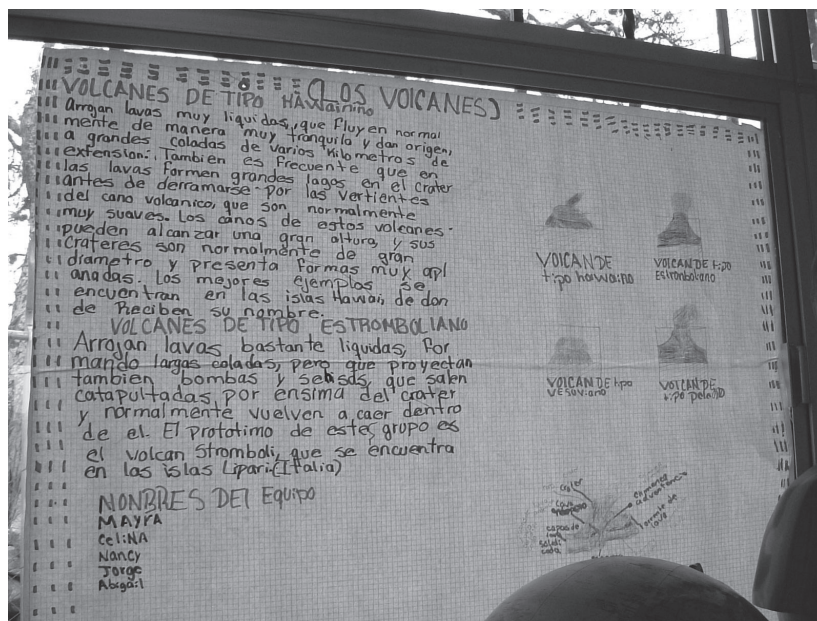 (LOS VOlCANES)
VOLCANES DE TIPO HAWainino
Arrojan lavas muy liquidas, que fluyen normal
mente de manera muy tranquila y dan origen,
a grandes coladas de varios Kilometros de
extension. Tambien es frecuente que en
las lavas formen grandes lagos en el crater
antes de derramarse por las vertientes
del cano volcanico, que son normalmente
muy suaves. Los canos de estos volcanes
pueden alcanzar una gran altura, y sus
Crateres son normalmente de gran
diametro y presenta formas muy apl
anadas. Los mejores ejemplos se
encuentran en las islas Hawai, de don
de Reciben su nombre.
VOLCANES DE TIPO ESTROMBOLIANO
Arrojan lavas bastante liquidas, For
mando largas coladas, pero que proyectan
tambien bombas y que salen
catapultadas por ensima del crater
y normalmente vuelven a caer dentro
de el. El Prototimo de este grupo es
el volcan Stromboli, que se encuentra
en las islas Lipari.(Italia)
NONBRES DEl Equipo
MAYRA
CeliNA
Nancy
Jorge
Abigail
VOlCAN DE
tipo hawaino
VOlCAN DE tipo
Estronbolano
VOlCAN DE tipo
Vesuviano
VOlCAN DE
tipo
crater
capas de
torrente de
lava